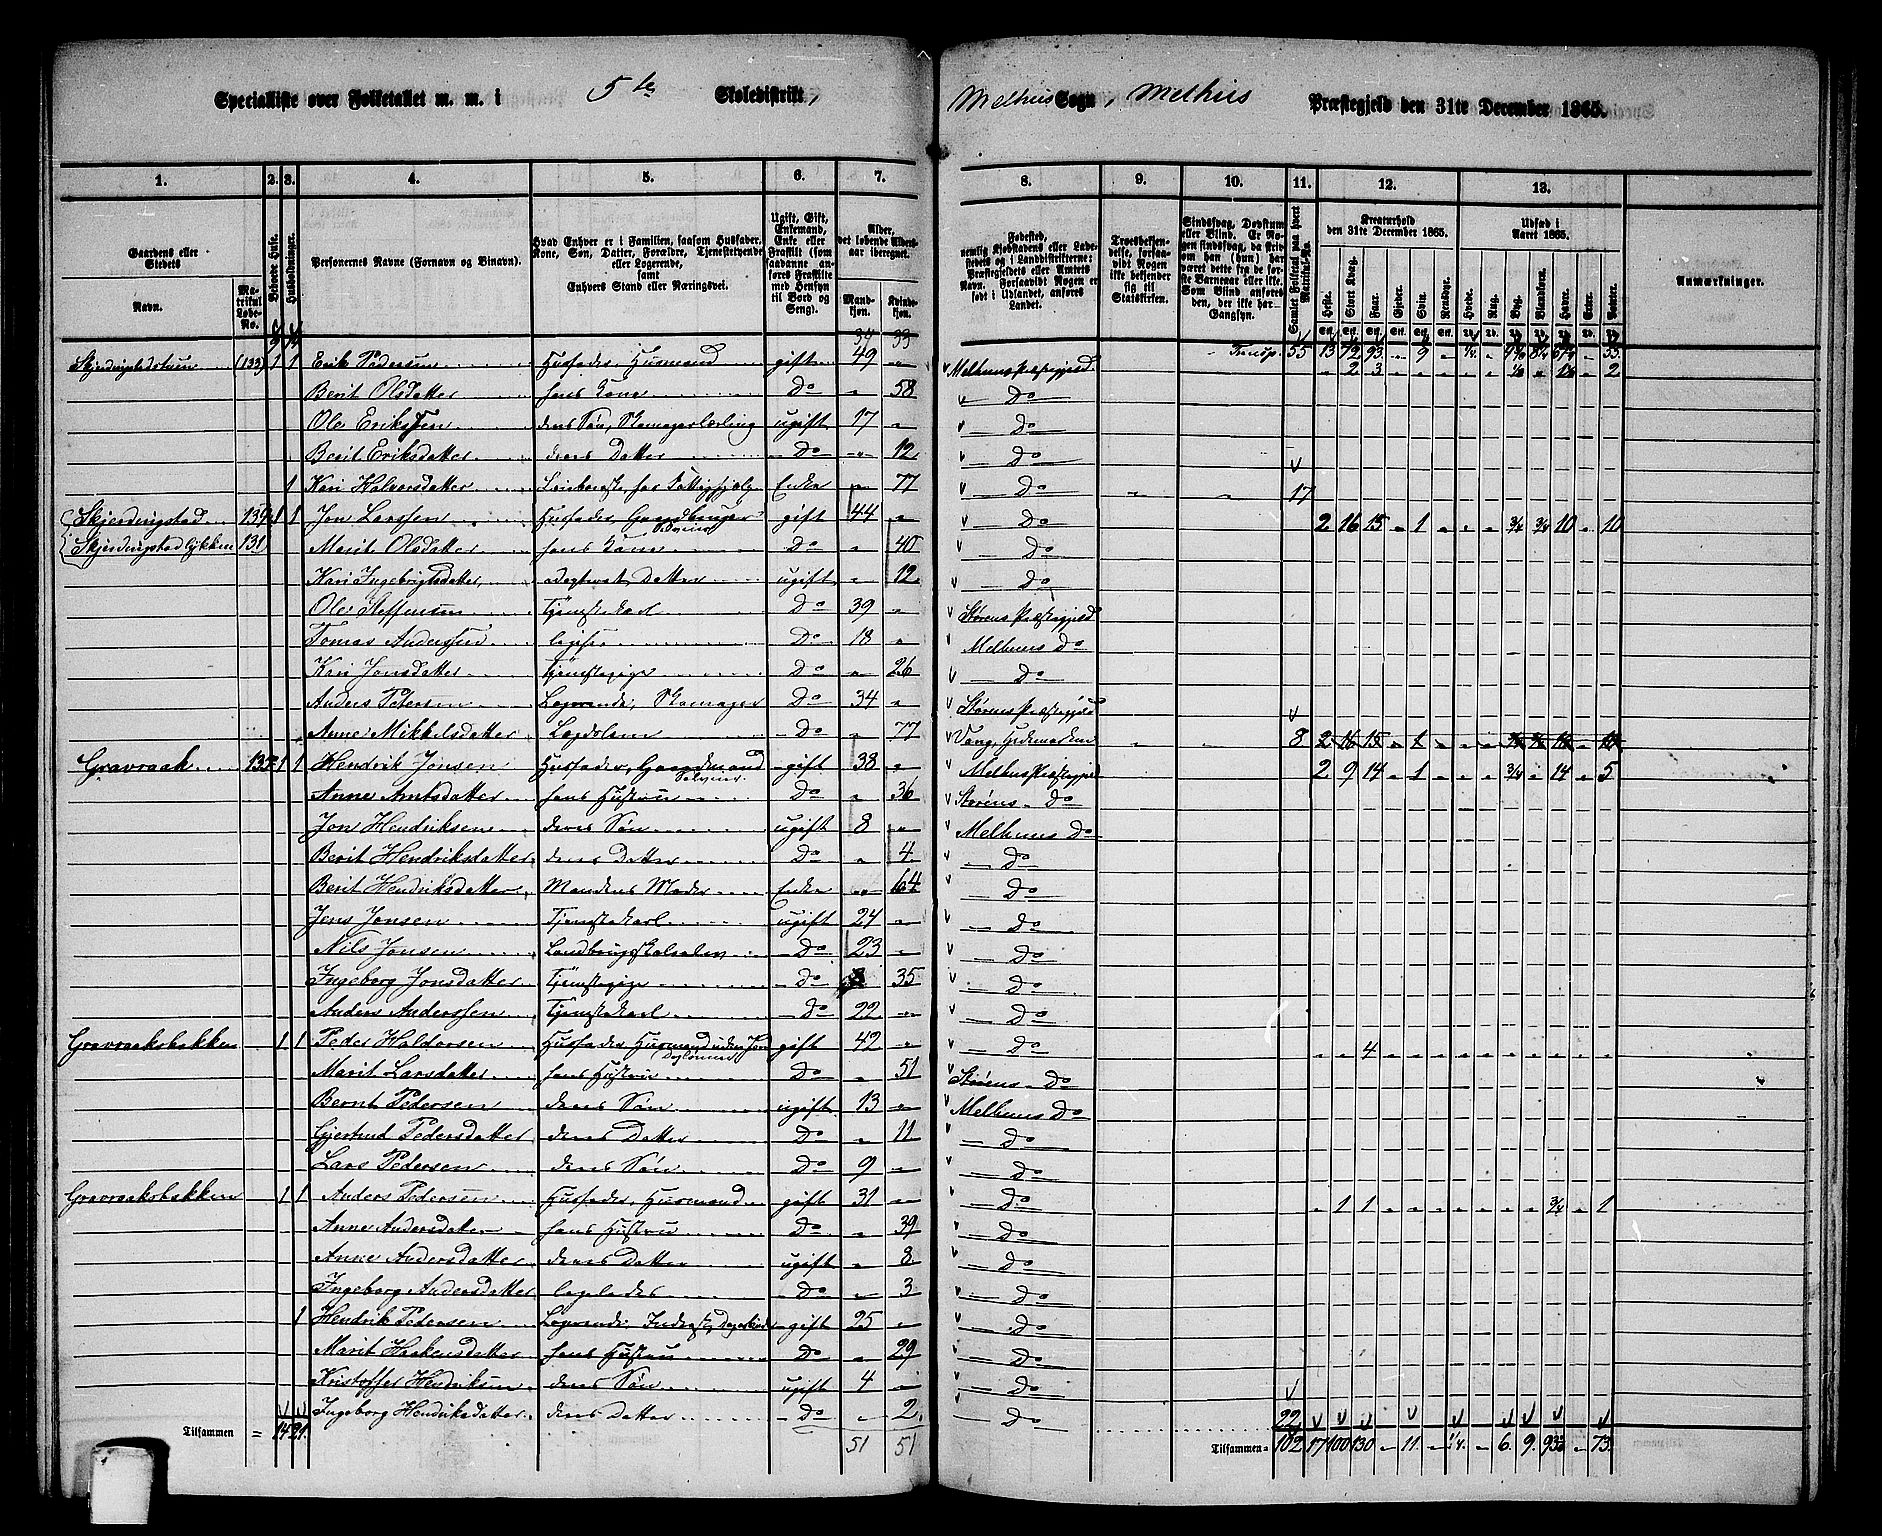 Specialliste over Folketallet m. m. i 5te Skoledistrikt, Melhus Sogn, Melhus Præstegjeld den 31te December 1865.
1. 2. 3. 4. 5. 6. 7. 8. 9. 10. 11. 12. 13.
Gaardens eller Stedets Navn. Matrikul Løbe-No. Beboede Huse. Husholdninger. Personernes Navne (Fornavn og Binavn). Hvad Enhver er i Familien, saasom Husfader, Kone, Søn, Datter, Forældre, Tjenestetyende eller Logerende, samt Enhvers Stand eller Næringsvei. Ugift, Gift, Enkemand, Enke eller Fraskilt (som saadanne anføres Fraskilte med Hensyn til Bord og Seng). Alder, det løbende Aldersaar iberegnet. Mandkjøn. Kvindekjøn.
Fødested, nemlig Kjøbstadens eller Ladestedets og i Landdistrikterne: Præstegjeldets eller Amtets Navn. Forsaavidt Nogen er født i Udlandet, anføres Landet. Troesbekjendelse, forsaavidt Nogen ikke bekjender sig til Statskirken. Sindssvag, Døvstum eller Blind. Samlet Folketal paa hvert Matrikul-No. Kreaturhold den 31te December 1865. Heste. Stort Kvæg. Faar. Gjeder. Sviin. Rensdyr. Udsæd i Aaret 1865. Hvede. Rug. Byg. Blandkorn. Havre. Erter. Poteter. Anmærkninger.
34 33
Transp. 55 13 72 93 - 9 - 1/4 - 55
Erik Pedersen Husfader Husmand gift 49 - Melhus Præstegjeld - 2 3 - 2
Berit Olsdatter hans Kone Do - 58 Do
Ole Eriksen deres Søn, Skomagerlærling ugift 17 - Do
Berit Eriksdatter deres Datter Do - 12 Do
1 Kari Halvorsdatter Enke - 77 Do 17
Skjerdingstad 1 1 Jon Larssen Husfader, Gaardbruger Selveier gift 44 - Do 2 16 15 - 1 - - - 3/4 3/4 10 - 10
Skjerdingstadlykken 131 Marit Olsdatter hans Kone Do - 40 Do
Kari Ingebrigtsdatter, adopteret Datter ugift - 12 Do
Ole Steffensen Tjenestekarl Do 39 - Størens Præstegjeld
Tomas Anderssen Do 18 - Melhus Do
Kari Jonsdatter Tjenestepige Do - 26 Do
Anders Petersen Logerende, Skomager Do 34 - Størens Præstegjeld
Anne Mikkelsdatter Lægdslem Do - 77 Vang, Hedemarken 8 2 16 15 - 1
Gravraak 1 1 Hendrik Jonsen Husfader, Gaardmand Selveier gift 38 - Melhus Præstegjeld 2 9 14 - 1 - - - 3/4 - 14 - 5
Anne Arntsdatter hans Hustru Do - 36 Størens Do
Jon Hendriksen deres Søn ugift 8 - Melhus Do
Berit Hendriksdatter deres Datter Do - 4 Do
Berit Hendriksdatter Mandens Moder Enke - 64 Do
Jens Jonsen Tjenestekarl ugift 24 - Do
Nils Jonsen Landbrugsskoleelev Do 23 - Do
Ingeborg Jonsdatter Tjenestepige Do 35 Do
Anders Anderssen Tjenestekarl Do 22 - Do
Gravraaksbakken 1 1 Peder Haldorsen Husfader Husmand uden Jord Daglønner gift 42 - Do - - 4
Marit Larsdatter hans Hustru Do - 51 Størens Do
Bernt Pedersen deres Søn ugift 13 - Melhus Do
Gjertrud Pedersdatter deres Datter Do - 11 Do
Lars Pedersen deres Søn Do 9 - Do
Gravraaksbakken 1 1 Anders Pedersen Husfader, Husmand gift 31 - Do - 1 1 - - - - - - - 3/4 - 1
Anne Andersdatter hans Hustru Do - 39 Do
Anne Andersdatter deres Datter ugift - 8 Do
Ingeborg Andersdatter ligeledes Do - 3 Do
1 Hendrik Petersen Logerende gift 25 - Do
Marit Haakensdatter hans Hustru Do - 29 Do
Kristoffer Hendriksen deres Søn ugift 4 - Do
Ingeborg Hendriksdatter deres Datter Do - 2 Do 22
Tilsammen = 14 21. 51 51 Tilsammen = 102 17 100 130 - 11. - 1/4. - 6. 9. - 73.